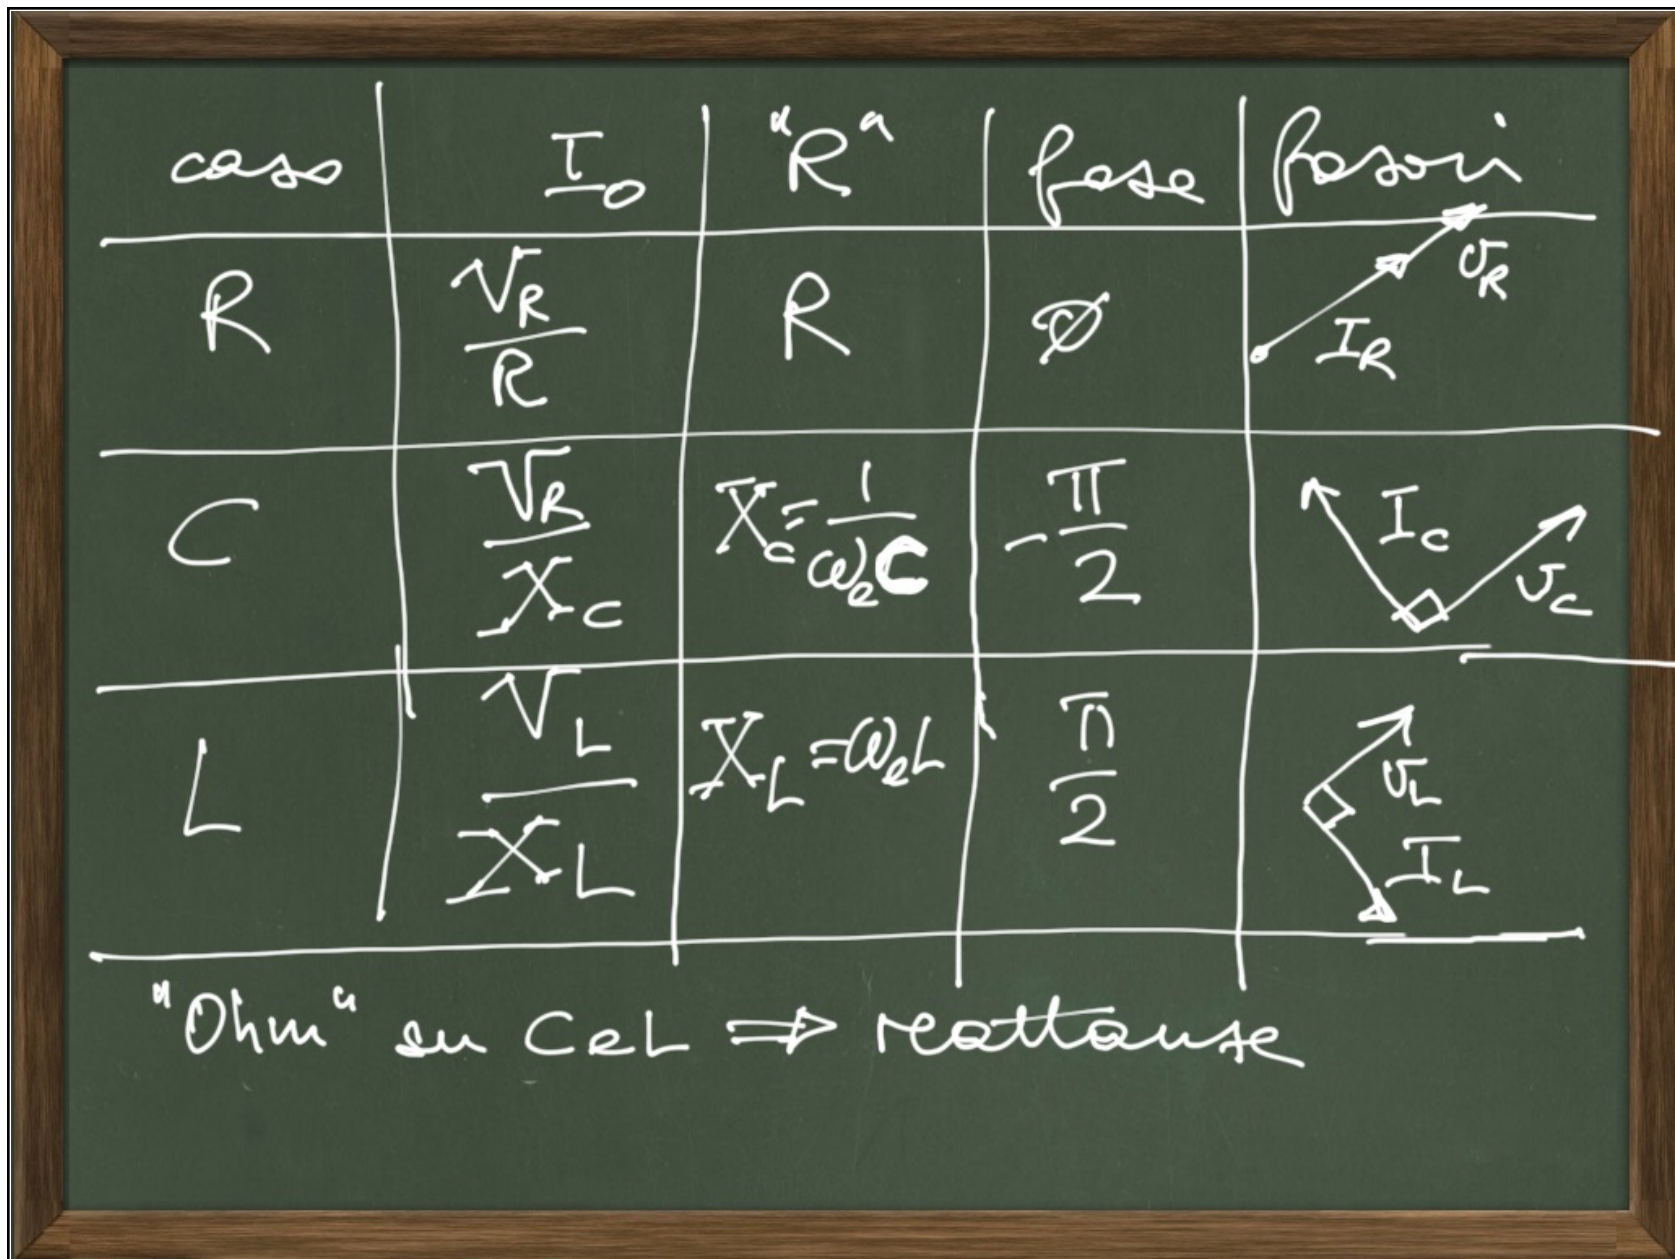 caso I₀ "R" fase fasori
R V_R/R R ∅ I_R v_R
C V_R/X_C X_C=1/ω_eC -π/2 I_C v_C
L V_L/X_L X_L=ω_eL π/2 v_L I_L
"Ohm" su C e L ⇒ reattanze